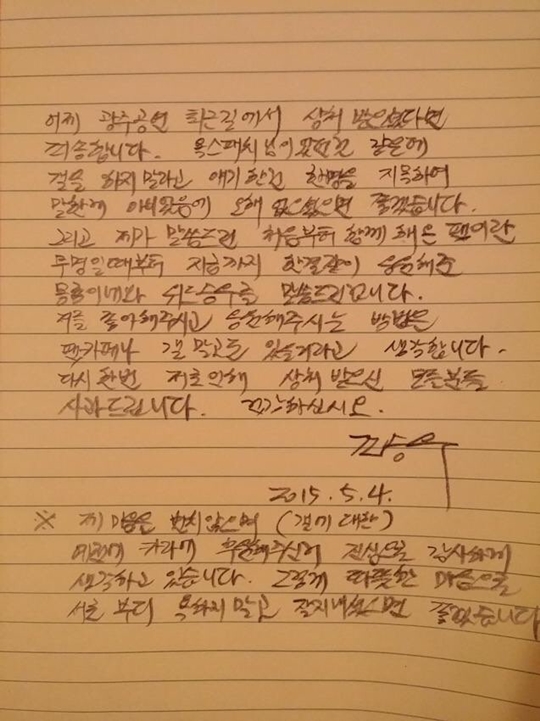 어제 광주공연 퇴근길에서 상처 받으셨다면
죄송합니다. 욕스패치님이 있던건 같은데
걸을 하지 말라고 얘기한건 한명을 지목하여
말한게 아니였음에 오해 없으셨으면 좋겠습니다.
그리고 제가 말씀드린 처음부터 함께 해온 팬이란
무명일때부터 지금까지 한결같이 응원해준
몽룡이네와 위드승우를 말씀드린겁니다.
저를 좋아해주시고 응원해주시는 방법은
팬카페나 갤 말고도 있을거라고 생각합니다.
다시한번 저로인해 상처 받으신 모든분들
사과드립니다. 건강하십시오.
2015. 5. 4.
※ 제 마음은 변치않으며 (갤에 대한)
예전에 카라에 후원해주신거 진심으로 감사하게
생각하고 있습니다. 그렇게 따뜻한 마음으로
서로 부디 욕하지말고 잘지내셨으면 좋겠습니다